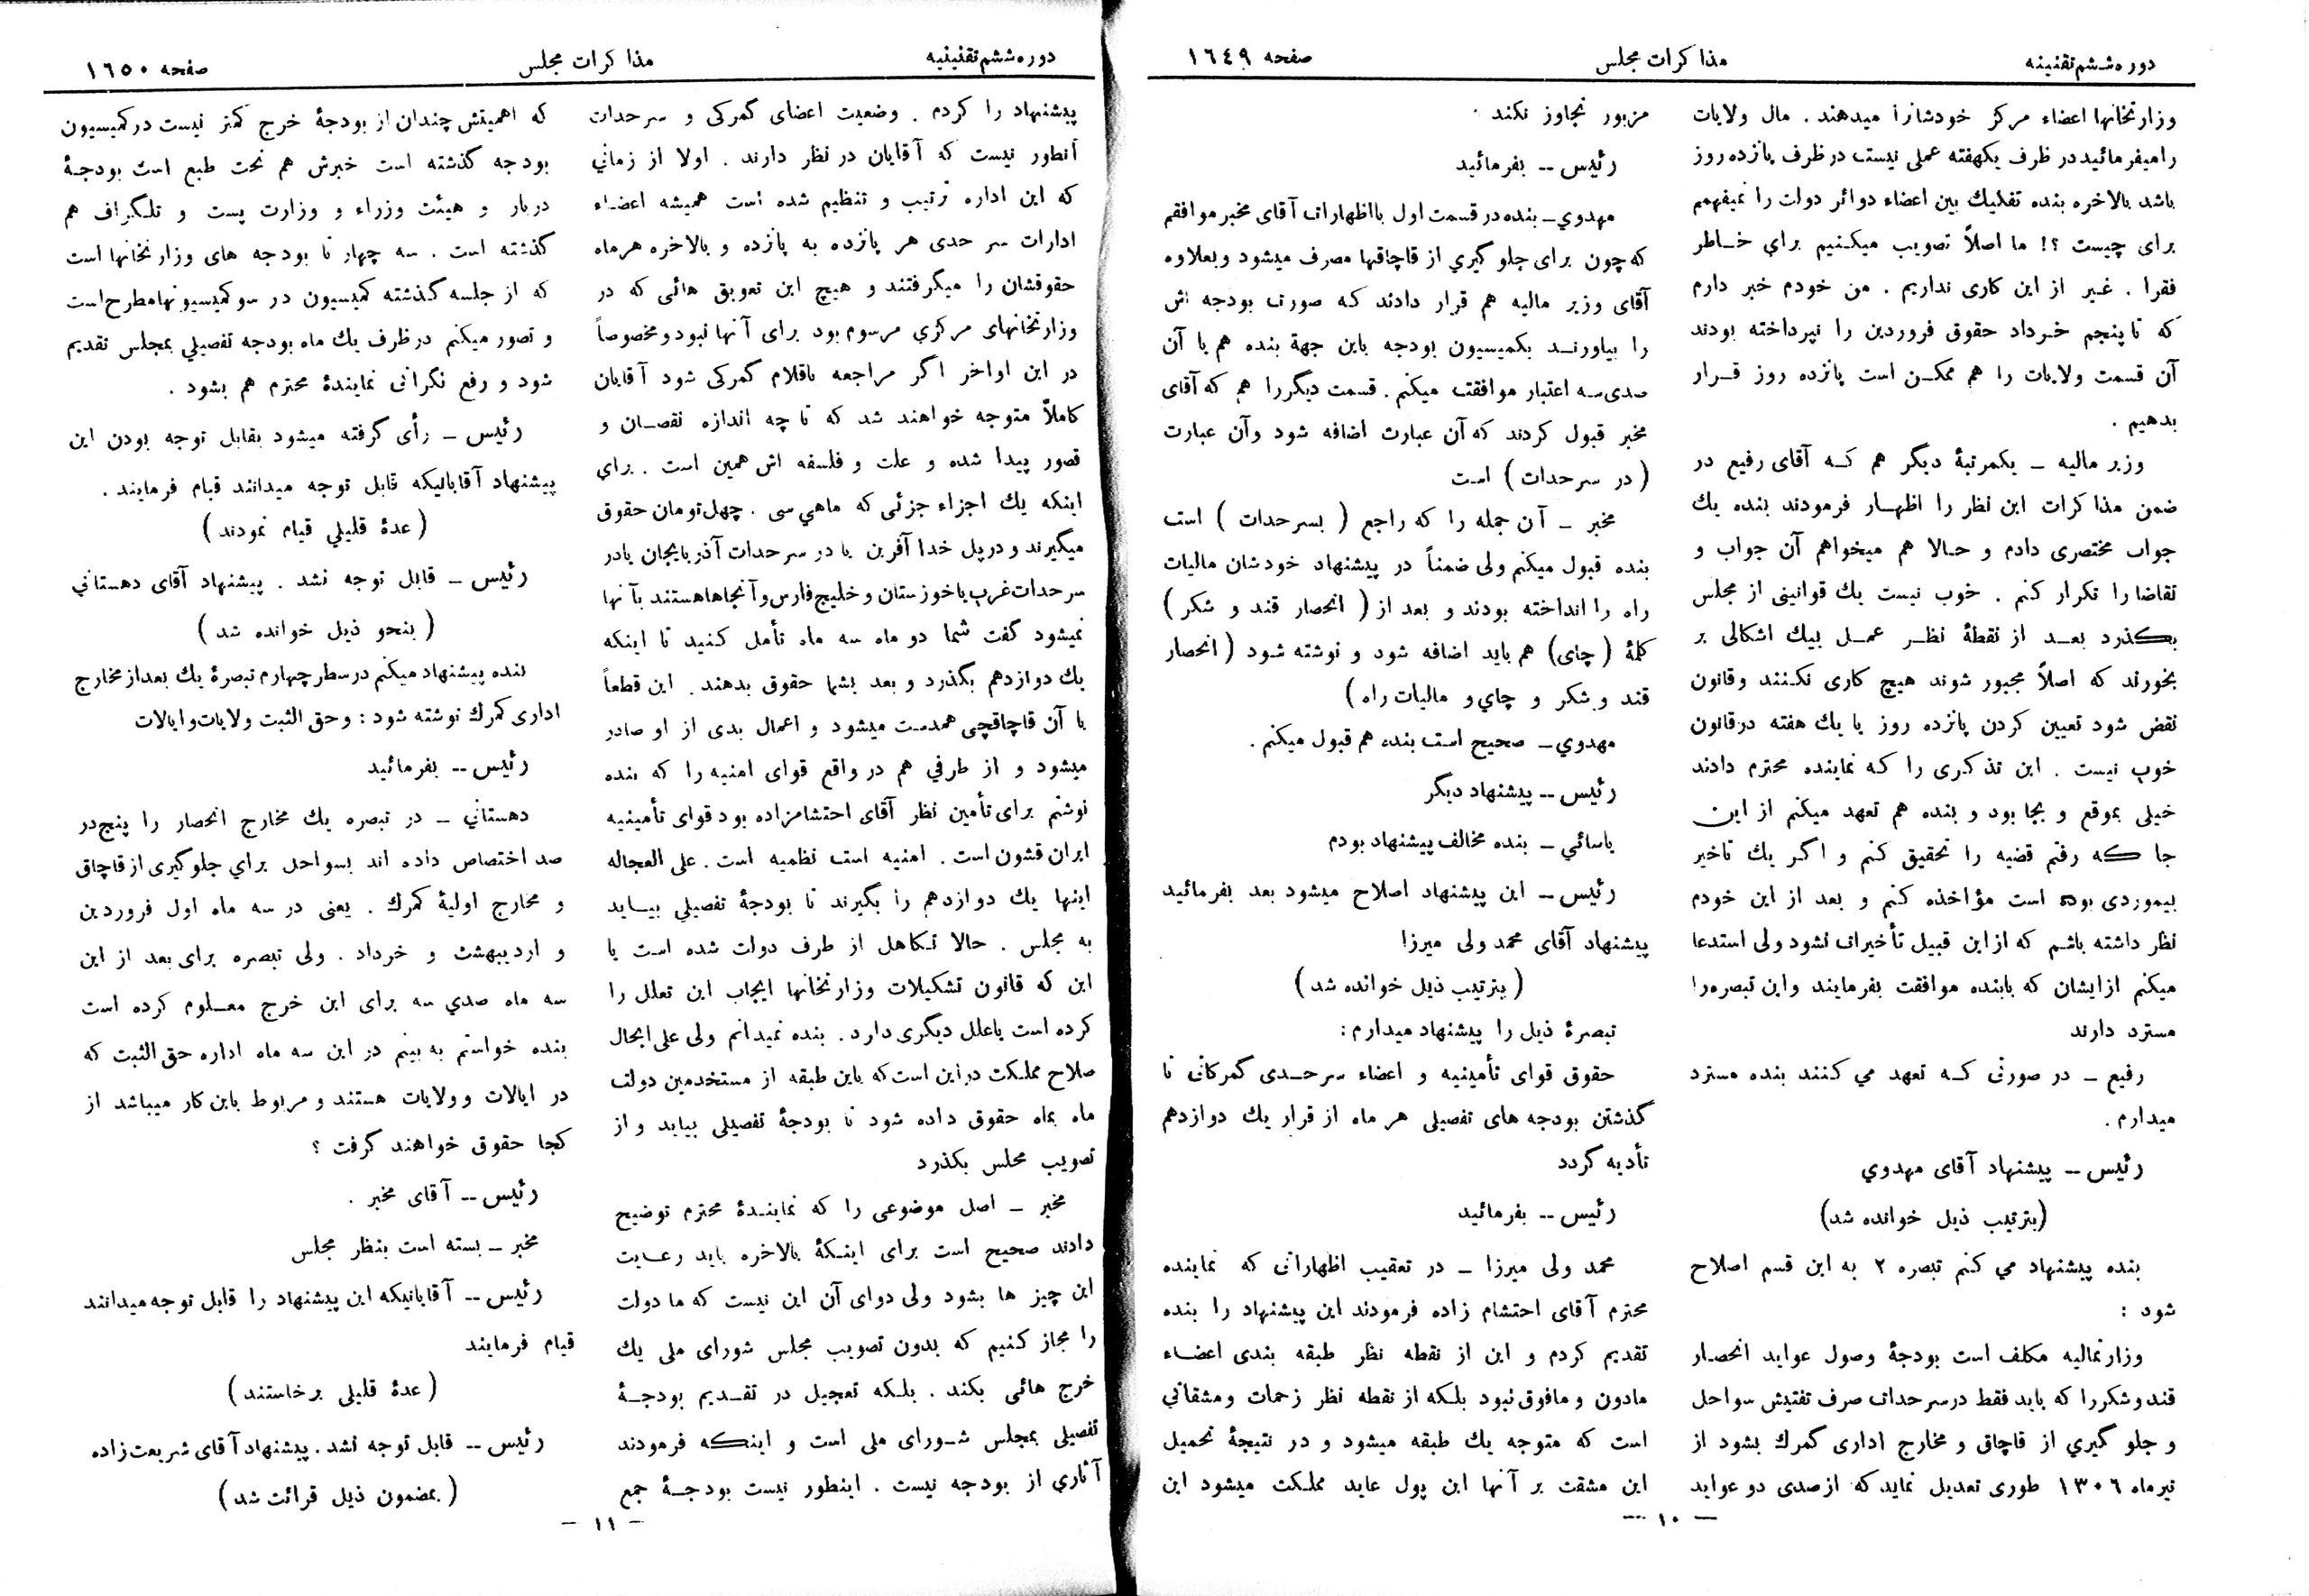 دوره ششم تقنینه
مذاکرات مجلس
صفحه ١٦٤٩
وزارتخانها اعضاء مرکز خودشانرا میدهند . مال ولایات
را میفرمائید در ظرف یکهفته عملی نیست در ظرف پانزده روز
باشد بالاخره بنده تفکیك بین اعضاء دوائر دولت را نمیفهمم
برای چیست ؟! ما اصلاً تصویب میکنیم برای خاطر
فقرا . غیر از این کاری نداریم . من خودم خبر دارم
که تا پنجم خرداد حقوق فروردین را نپرداخته بودند
آن قسمت ولایات را هم ممکن است پانزده روز قرار
بدهیم .
وزیر مالیه ـ یکمرتبۀ دیگر هم که آقای رفیع در
ضمن مذاکرات این نظر را اظهار فرمودند بنده یك
جواب مختصری دادم و حالا هم میخواهم آن جواب و
تقاضا را تکرار کنم . خوب نیست یك قوانینی از مجلس
بگذرد بعد از نقطۀ نظر عمل بیك اشکالی بر
بخورند که اصلاً مجبور شوند هیچ کاری نکنند و قانون
نقض شود تعیین کردن پانزده روز یا یك هفته در قانون
خوب نیست . این تذکری را که نماینده محترم دادند
خیلی بموقع و بجا بود و بنده هم تعهد میکنم از این
جا که رفتم قضیه را تحقیق کنم و اگر یك تاخیر
بیموردی بوده است مؤاخذه کنم و بعد از این خودم
نظر داشته باشم که از این قبیل تأخیرات نشود ولی استدعا
میکنم از ایشان که با بنده موافقت بفرمایند و این تبصره را
مسترد دارند
رفیع ـ در صورتی که تعهد می کنند بنده مسترد
میدارم .
رئیس -- پیشنهاد آقای مهدوي
(بترتیب ذیل خوانده شد)
بنده پیشنهاد می کنم تبصره ٢ به این قسم اصلاح
شود :
وزارتمالیه مکلف است بودجۀ وصول عواید انحصار
قند و شکر را که باید فقط در سرحدات صرف تفتیش سواحل
و جلو گیري از قاچاق و مخارج اداری گمرك بشود از
تیر ماه ١٣٠٦ طوری تعدیل نماید که از صدی دو عواید
مزبور تجاوز نکند .
رئیس -- بفرمائید
مهدوي ـ بنده در قسمت اول با اظهارات آقای مخبر موافقم
که چون برای جلو گیري از قاچاقها مصرف میشود و بعلاوه
آقای وزیر مالیه هم قرار دادند که صورت بودجه اش
را بیاورند بکمیسیون بودجه باین جهة بنده هم با آن
صدی سه اعتبار موافقت میکنم . قسمت دیگر را هم که آقای
مخبر قبول کردند که آن عبارت اضافه شود و آن عبارت
( در سرحدات ) است
مخبر ـ آن جمله را که راجع ( بسرحدات ) است
بنده قبول میکنم ولی ضمناً در پیشنهاد خودشان مالیات
راه را انداخته بودند و بعد از ( انحصار قند و شکر )
کلمۀ ( چای ) هم باید اضافه شود و نوشته شود ( انحصار
قند و شکر و چاي و مالیات راه )
مهدوي ـ صحیح است بنده هم قبول میکنم .
رئیس -- پیشنهاد دیگر
یاسائي ـ بنده مخالف پیشنهاد بودم
رئیس -- این پیشنهاد اصلاح میشود بعد بفرمائید
پیشنهاد آقای محمد ولی میرزا
( بترتیب ذیل خوانده شد )
تبصرۀ ذیل را پیشنهاد میدارم :
حقوق قوای تأمینیه و اعضاء سرحدی گمرکاتی تا
گذشتن بودجه های تفصیلی هر ماه از قرار یك دوازدهم
تأدیه گردد
رئیس -- بفرمائید
محمد ولی میرزا ـ در تعقیب اظهاراتی که نماینده
محترم آقای احتشام زاده فرمودند این پیشنهاد را بنده
تقدیم کردم و این از نقطه نظر طبقه بندی اعضاء
مادون و مافوق نبود بلکه از نقطه نظر زحمات و مشقاتي
است که متوجه یك طبقه میشود و در نتیجۀ تحمیل
این مشقت بر آنها این پول عاید مملکت میشود این
— ١٠ —
دوره ششم تقنینیه
مذاکرات مجلس
صفحه ١٦٥٠
پیشنهاد را کردم . وضعیت اعضای گمرکی و سرحدات
آنطور نیست که آقایان در نظر دارند . اولا از زماني
که این اداره ترتیب و تنظیم شده است همیشه اعضاء
ادارات سر حدی هر پانزده به پانزده و بالاخره هر ماه
حقوقشان را میگرفتند و هیچ این تعویق هائی که در
وزارتخانهای مرکزي مرسوم بود برای آنها نبود و مخصوصاً
در این اواخر اگر مراجعه باقلام گمرکی شود آقایان
کاملاً متوجه خواهند شد که تا چه اندازه نقصان و
قصور پیدا شده و علت و فلسفه اش همین است . براي
اینکه یك اجزاء جزئی که ماهي سی . چهل تومان حقوق
میگیرند و در پل خدا آفرین یا در سرحدات آذربایجان یا در
سرحدات غرب یا خوزستان و خلیج فارس و آنجاها هستند بآنها
نمیشود گفت شما دو ماه سه ماه تأمل کنید تا اینکه
یك دوازدهم بگذرد و بعد بشما حقوق بدهند . این قطعاً
با آن قاچاقچی همدست میشود و اعمال بدی از او صادر
میشود و از طرفي هم در واقع قوای امنیه را که بنده
نوشتم برای تأمین نظر آقای احتشامزاده بود قوای تأمینیه
ایران قشون است . امنیه است نظمیه است . علی العجاله
اینها یك دوازدهم را بگیرند تا بودجۀ تفصیلي بیاید
به مجلس . حالا تکاهل از طرف دولت شده است یا
این که قانون تشکیلات وزارتخانها ایجاب این تعلل را
کرده است یا علل دیگری دارد . بنده نمیدانم ولی علی ایحال
صلاح مملکت در این است که باین طبقه از مستخدمین دولت
ماه بماه حقوق داده شود تا بودجۀ تفصیلی بیاید و از
تصویب مجلس بگذرد
مخبر ـ اصل موضوعی را که نمایندۀ محترم توضیح
دادند صحیح است برای اینکۀ بالاخره باید رعایت
این چیز ها بشود ولی دوای آن این نیست که ما دولت
را مجاز کنیم که بدون تصویب مجلس شورای ملی یك
خرج هائی بکند . بلکه تعجیل در تقدیم بودجۀ
تفصیلی بمجلس شورای ملی است و اینکه فرمودند
آثاري از بودجه نیست . اینطور نیست بودجۀ جمع
که اهمیتش چندان از بودجۀ خرج کمتر نیست در کمیسیون
بودجه گذشته است خبرش هم تحت طبع است بودجۀ
دربار و هیئت وزراء و وزارت پست و تلگراف هم
گذشته است . سه چهار تا بودجه های وزارتخانها است
که از جلسه گذشته کمیسیون در سو کمیسیونها مطرح است
و تصور میکنم در ظرف یك ماه بودجه تفصیلي بمجلس تقدیم
شود و رفع نگرانی نمایندۀ محترم هم بشود .
رئیس ـ رأی گرفته میشود بقابل توجه بودن این
پیشنهاد آقایانیکه قابل توجه میدانند قیام فرمایند .
( عدۀ قلیلي قیام نمودند )
رئیس ـ قابل توجه نشد . پیشنهاد آقای دهستاني
( بنحو ذیل خوانده شد )
بنده پیشنهاد میکنم در سطر چهارم تبصرۀ یك بعد از مخارج
اداری گمرك نوشته شود : و حق الثبت ولایات و ایالات
رئیس -- بفرمائید
دهستاني ـ در تبصره یك مخارج انحصار را پنج در
صد اختصاص داده اند بسواحل براي جلو گیری از قاچاق
و مخارج اولیۀ گمرك . یعنی در سه ماه اول فروردین
و اردیبهشت و خرداد . ولی تبصره برای بعد از این
سه ماه صدي سه برای این خرج معلوم کرده است
بنده خواستم به بینم در این سه ماه اداره حق الثبت که
در ایالات و ولایات هستند و مربوط باین کار میباشد از
کجا حقوق خواهند گرفت ؟
رئیس -- آقای مخبر .
مخبر ـ بسته است بنظر مجلس
رئیس -- آقایانیکه این پیشنهاد را قابل توجه میدانند
قیام فرمایند
( عدۀ قلیلی برخاستند )
رئیس -- قابل توجه نشد . پیشنهاد آقای شریعت زاده
( بمضمون ذیل قرائت شد )
— ١١ —